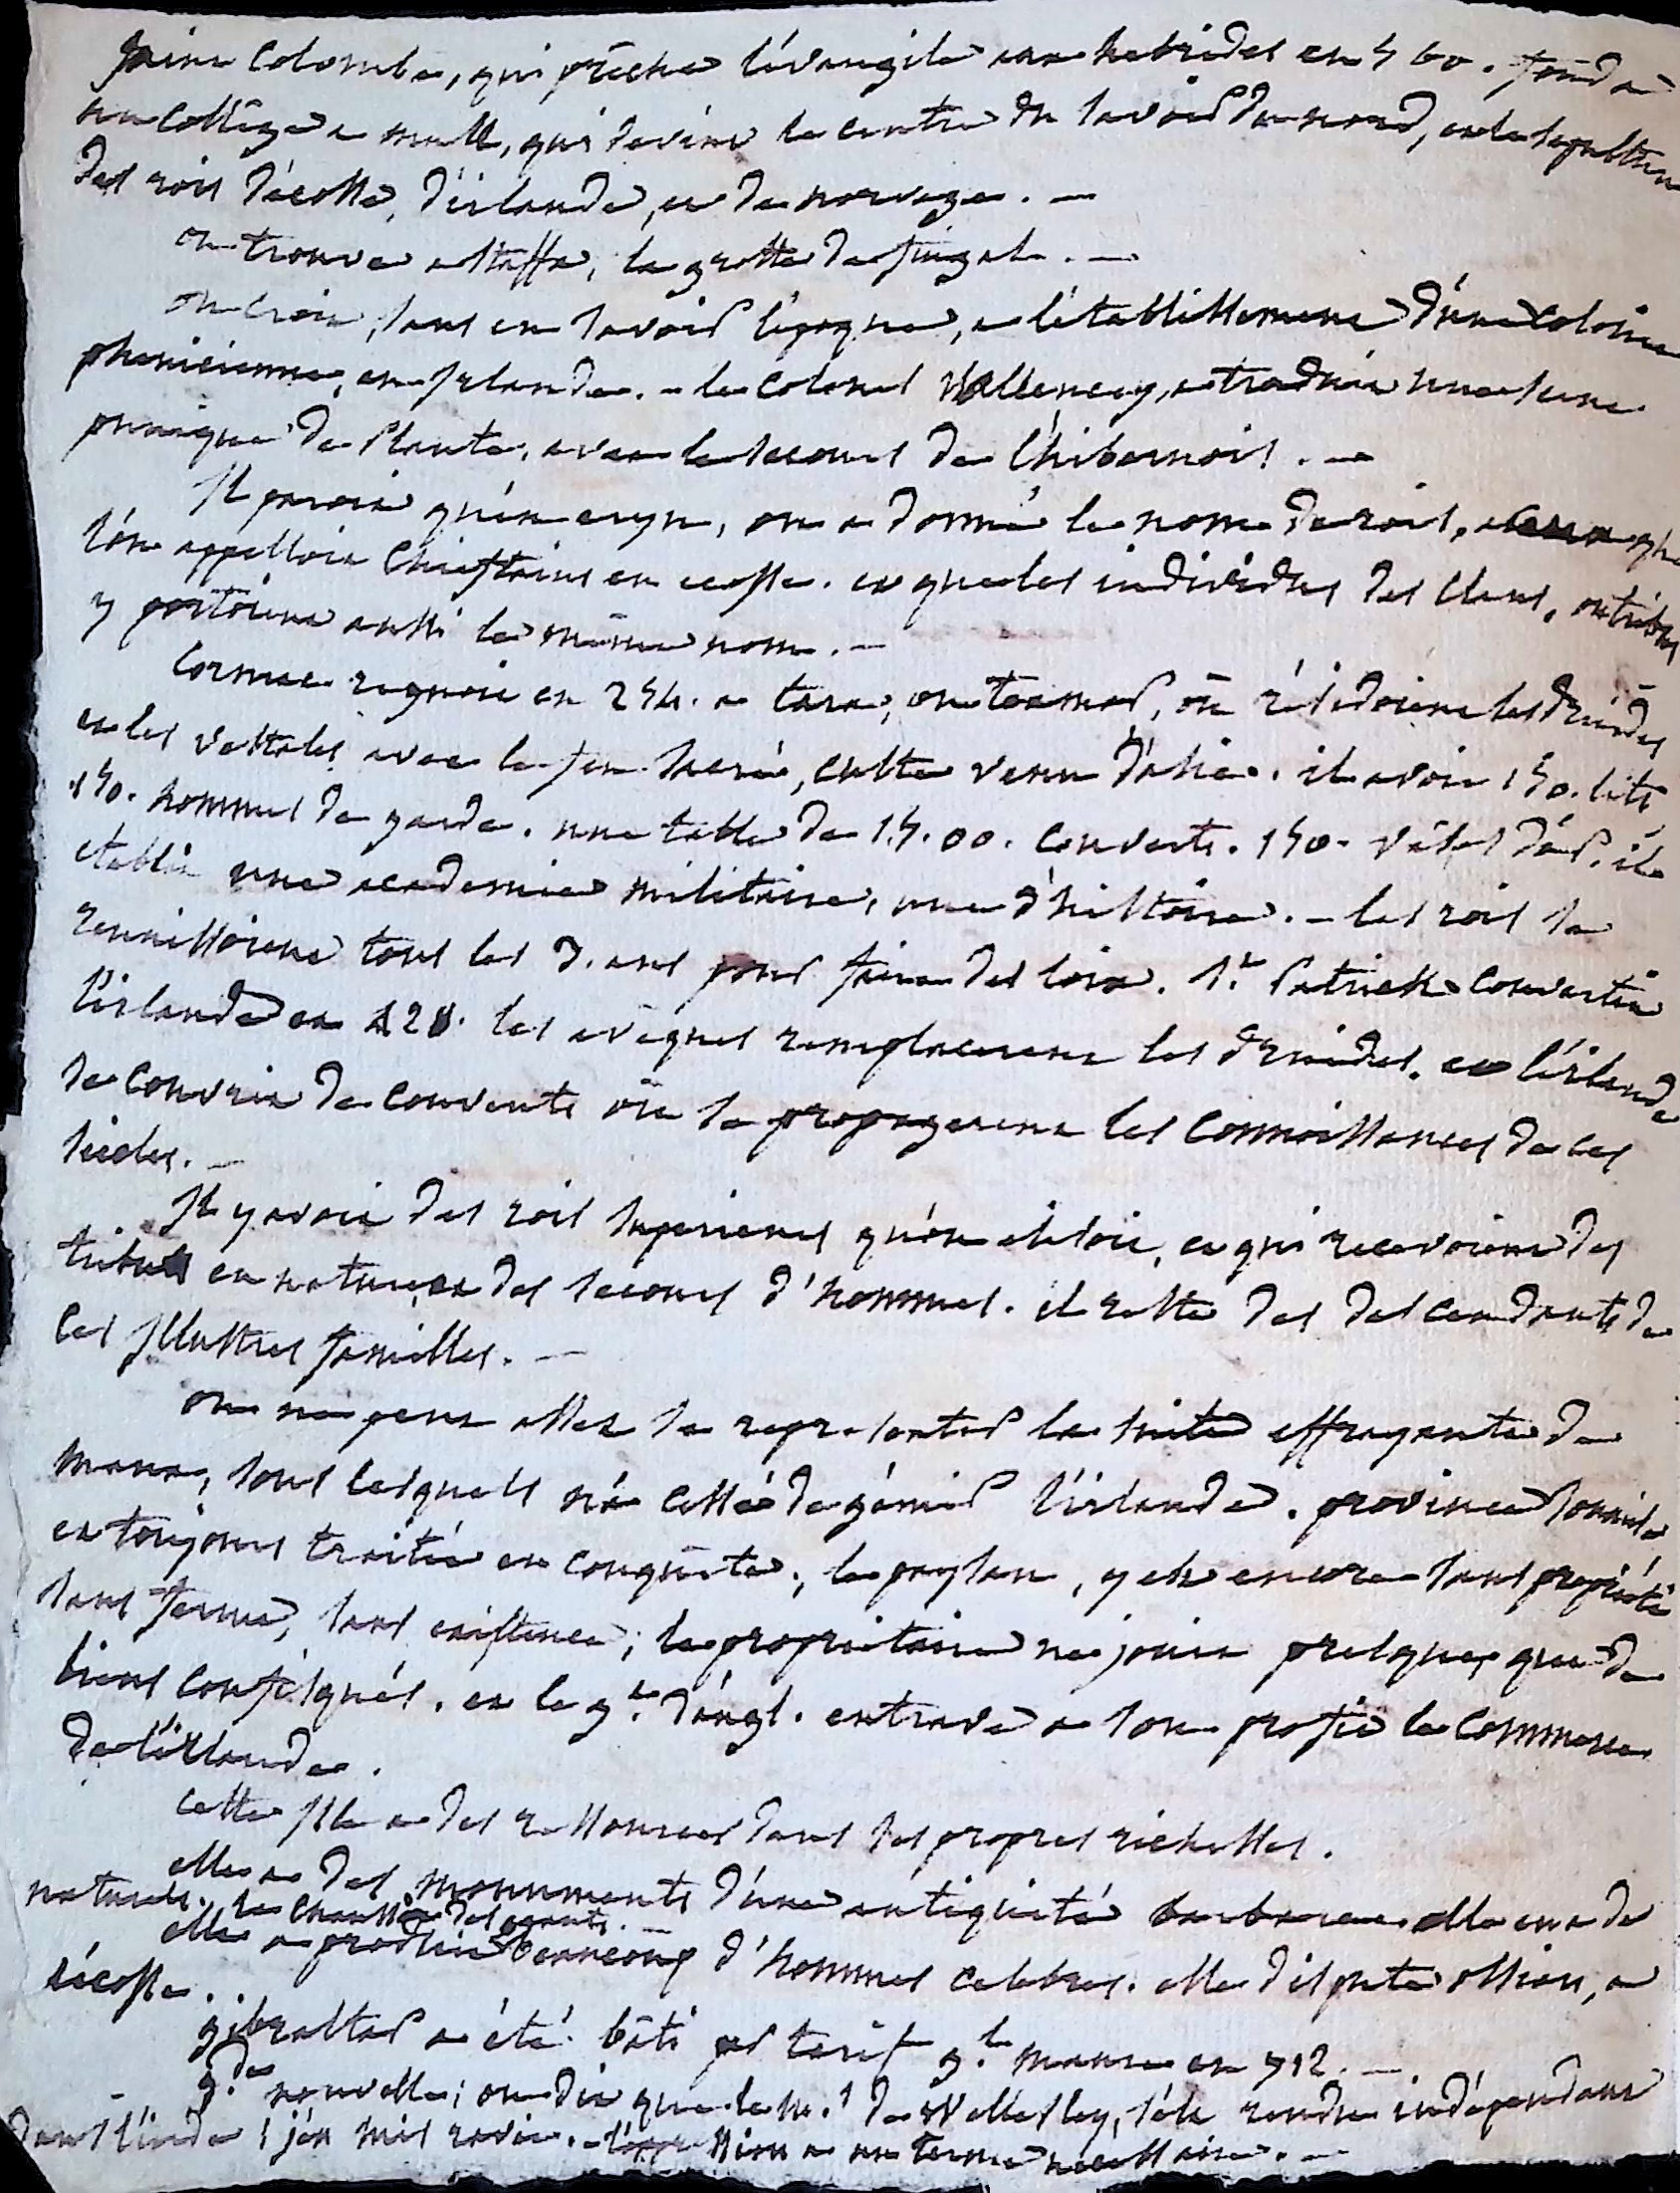 saint Colomba, qui precha l'évangile aux hebrides en 560. fonda
un college a mull, qui devint le centre du savoir du nord, et la sepulture
des rois d'écosse, d'irlande, et de norvege. —
on trouve a staffa, la grotte de fingal. —
on croit, sans en savoir l'époque, a l'établissement d'une colonie
phenicienne, en Irlande. – le colonel Vallencey, a traduit une scene
punique de Plaute, avec le secours de l'hibernois. —
Il paroit qu'en eryn, on a donné le nom de rois, a ceux que
l'on appelloit Chieftains en ecosse. et que les individus des clans, ou tribus
y portoient aussi le même nom. —
Cormac regnoit en 254. a tara, ou teamor, où résidoient les druides
et les vestales avec le feu sacré, culte venu d'asie. il avoit 150. lits
150. hommes de garde. une table de 15.00. couverts. 150. vases d'or. il
etablit une academie militaire, une d'histoire. – les rois se
reunissoient tous les 3. ans pour faire des loix. St. Patrick convertit
l'irlande en 428. les evêques remplacerent les druides. et l'irlande
se couvrit de couvents où se propagerent les connoissances de ces
siecles. —
Il y avoit des rois superieurs qu'on elisoit, et qui recevoient des
tributs en nature, et des secours d'hommes. il reste des descendants de
ces Illustres familles. —
on ne peut assez se representer la suite effrayante de
maux, sous lesquels n'a cessé de gémir l'irlande. province soumise
et toujours traitée en conquête, le paysan, y est encore sans propriété
sans ferme, sans existence; le proprietaire ne jouit presque, que de
biens confisqués. et le gt. d'angl. entrave a son profit le commerce
de l'irlande.
cette Ile a des ressources dans ses propres richesses.
elle a des monuments d'une antiquité barbare. elle en a de
naturels. la chaussée des geants. —
elle a produit beaucoup d'hommes celebres. elle dispute ossian, a
l'écosse.
gibraltar a été bâti par tarif gl. maure en 712. —
gde. nouvelle; on dit que le m.s de Wellesley, s'est rendu indépendant
dans l'inde! j'en suis ravie. – l'oppression a un terme necessaire. —